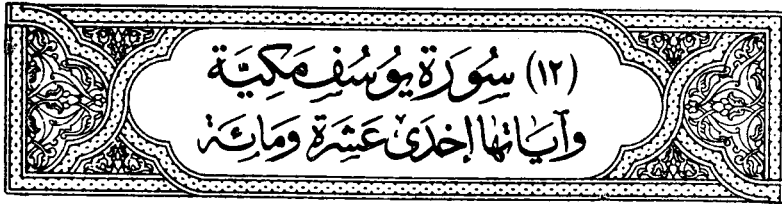 (١٢) سُورَةِ يُوسُفَ مَكِيَّة
وَآيَاتهَا إِحْدَىٰ عَشِرَةَ وَمَائِة